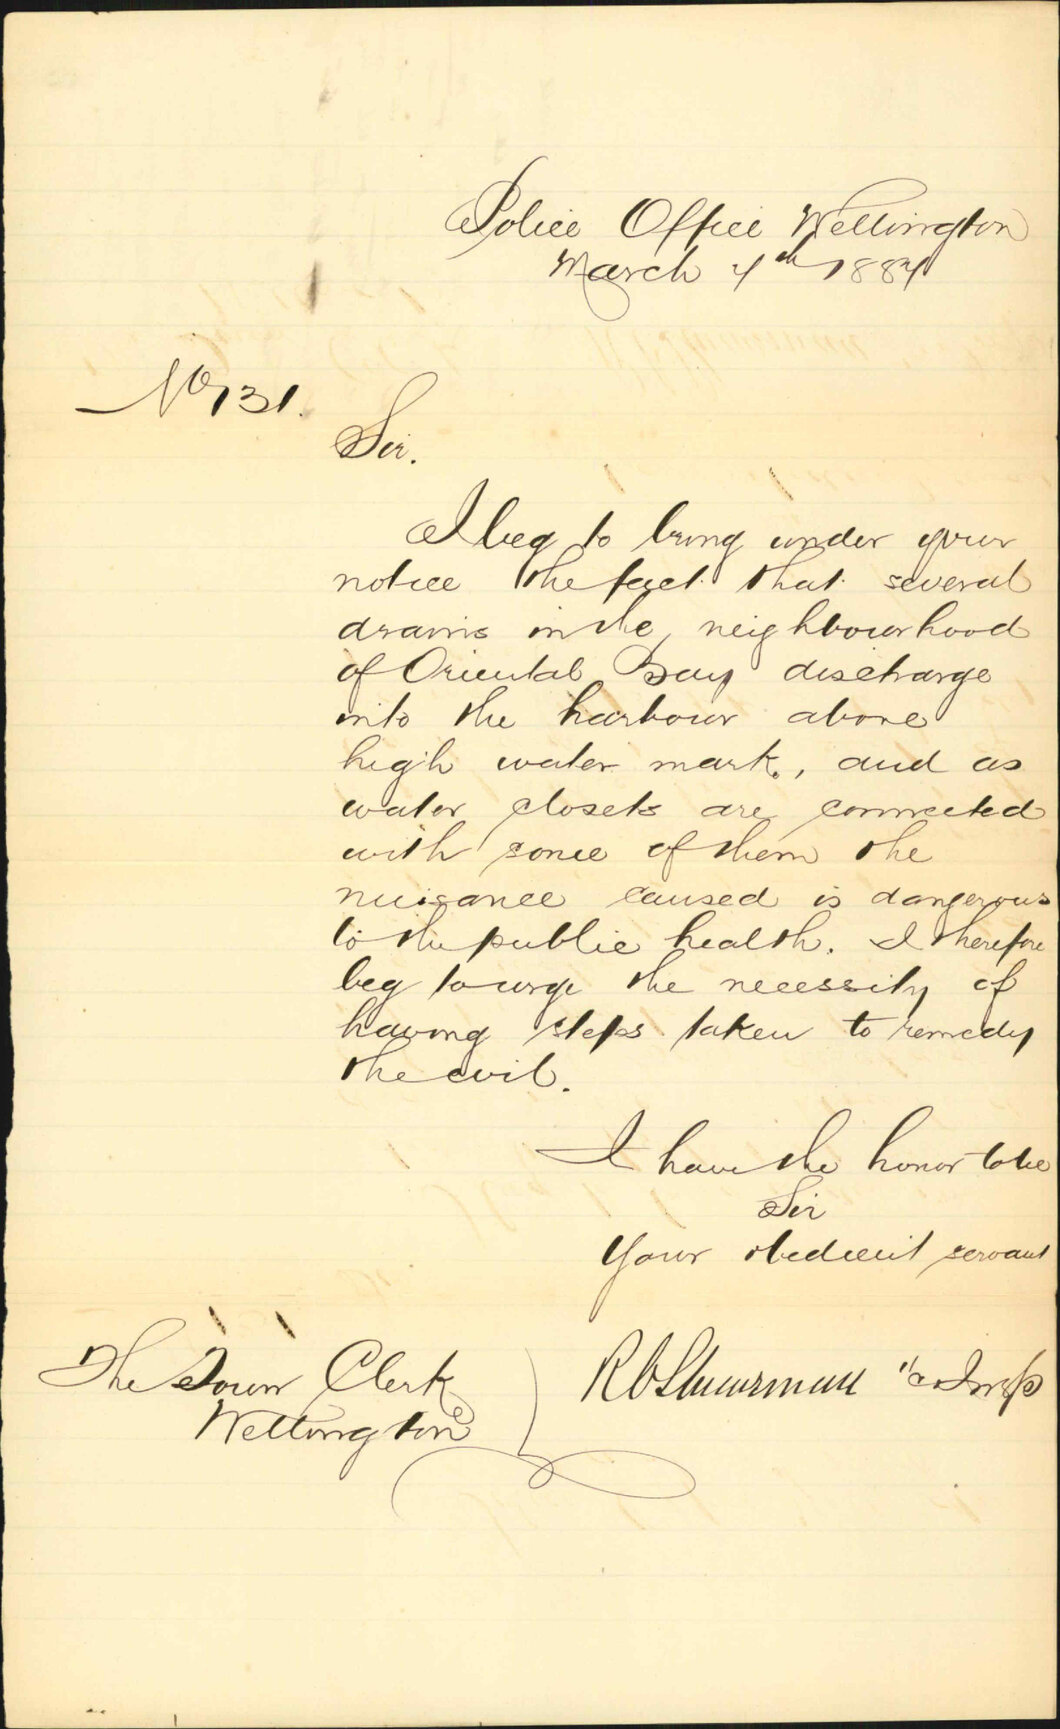 Police Office Wellington
March 4th 1884
No 131.
Sir.
I beg to bring under your
notice the fact that several
drains in the neighbourhood
of Oriental Bay discharge
into the harbour above
high water mark, and as
water closets are connected
with some of them the
nuisance caused is dangerous
to the public health. I therefore
beg to urge the necessity of
having steps taken to remedy
the evil.
I have the honor to be
Sir
Your obedient servant
R C Shearman Insp
The Town Clerk
Wellington